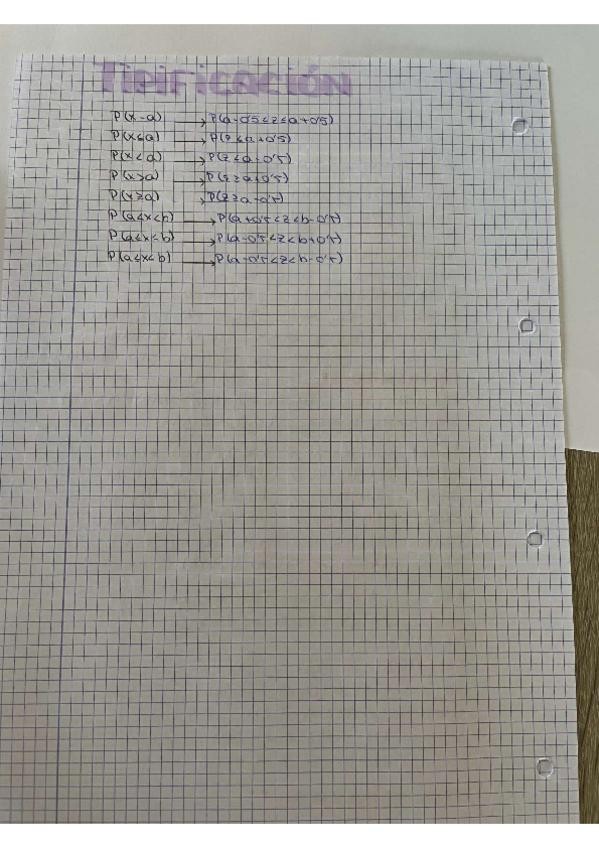 Tipificación
P(x=a) → P(a-0'5≤z≤a+0'5)
P(x≤a) → P(z≤a+0'5)
P(x<a) → P(z≤a-0'5)
P(x>a) → P(z≥a+0'5)
P(x≥a) → P(z≥a-0'5)
P(a<x<b) → P(a+0'5<z<b-0'5)
P(a≤x≤b) → P(a-0'5<z<b+0'5)
P(a≤x<b) → P(a-0'5<z<b-0'5)